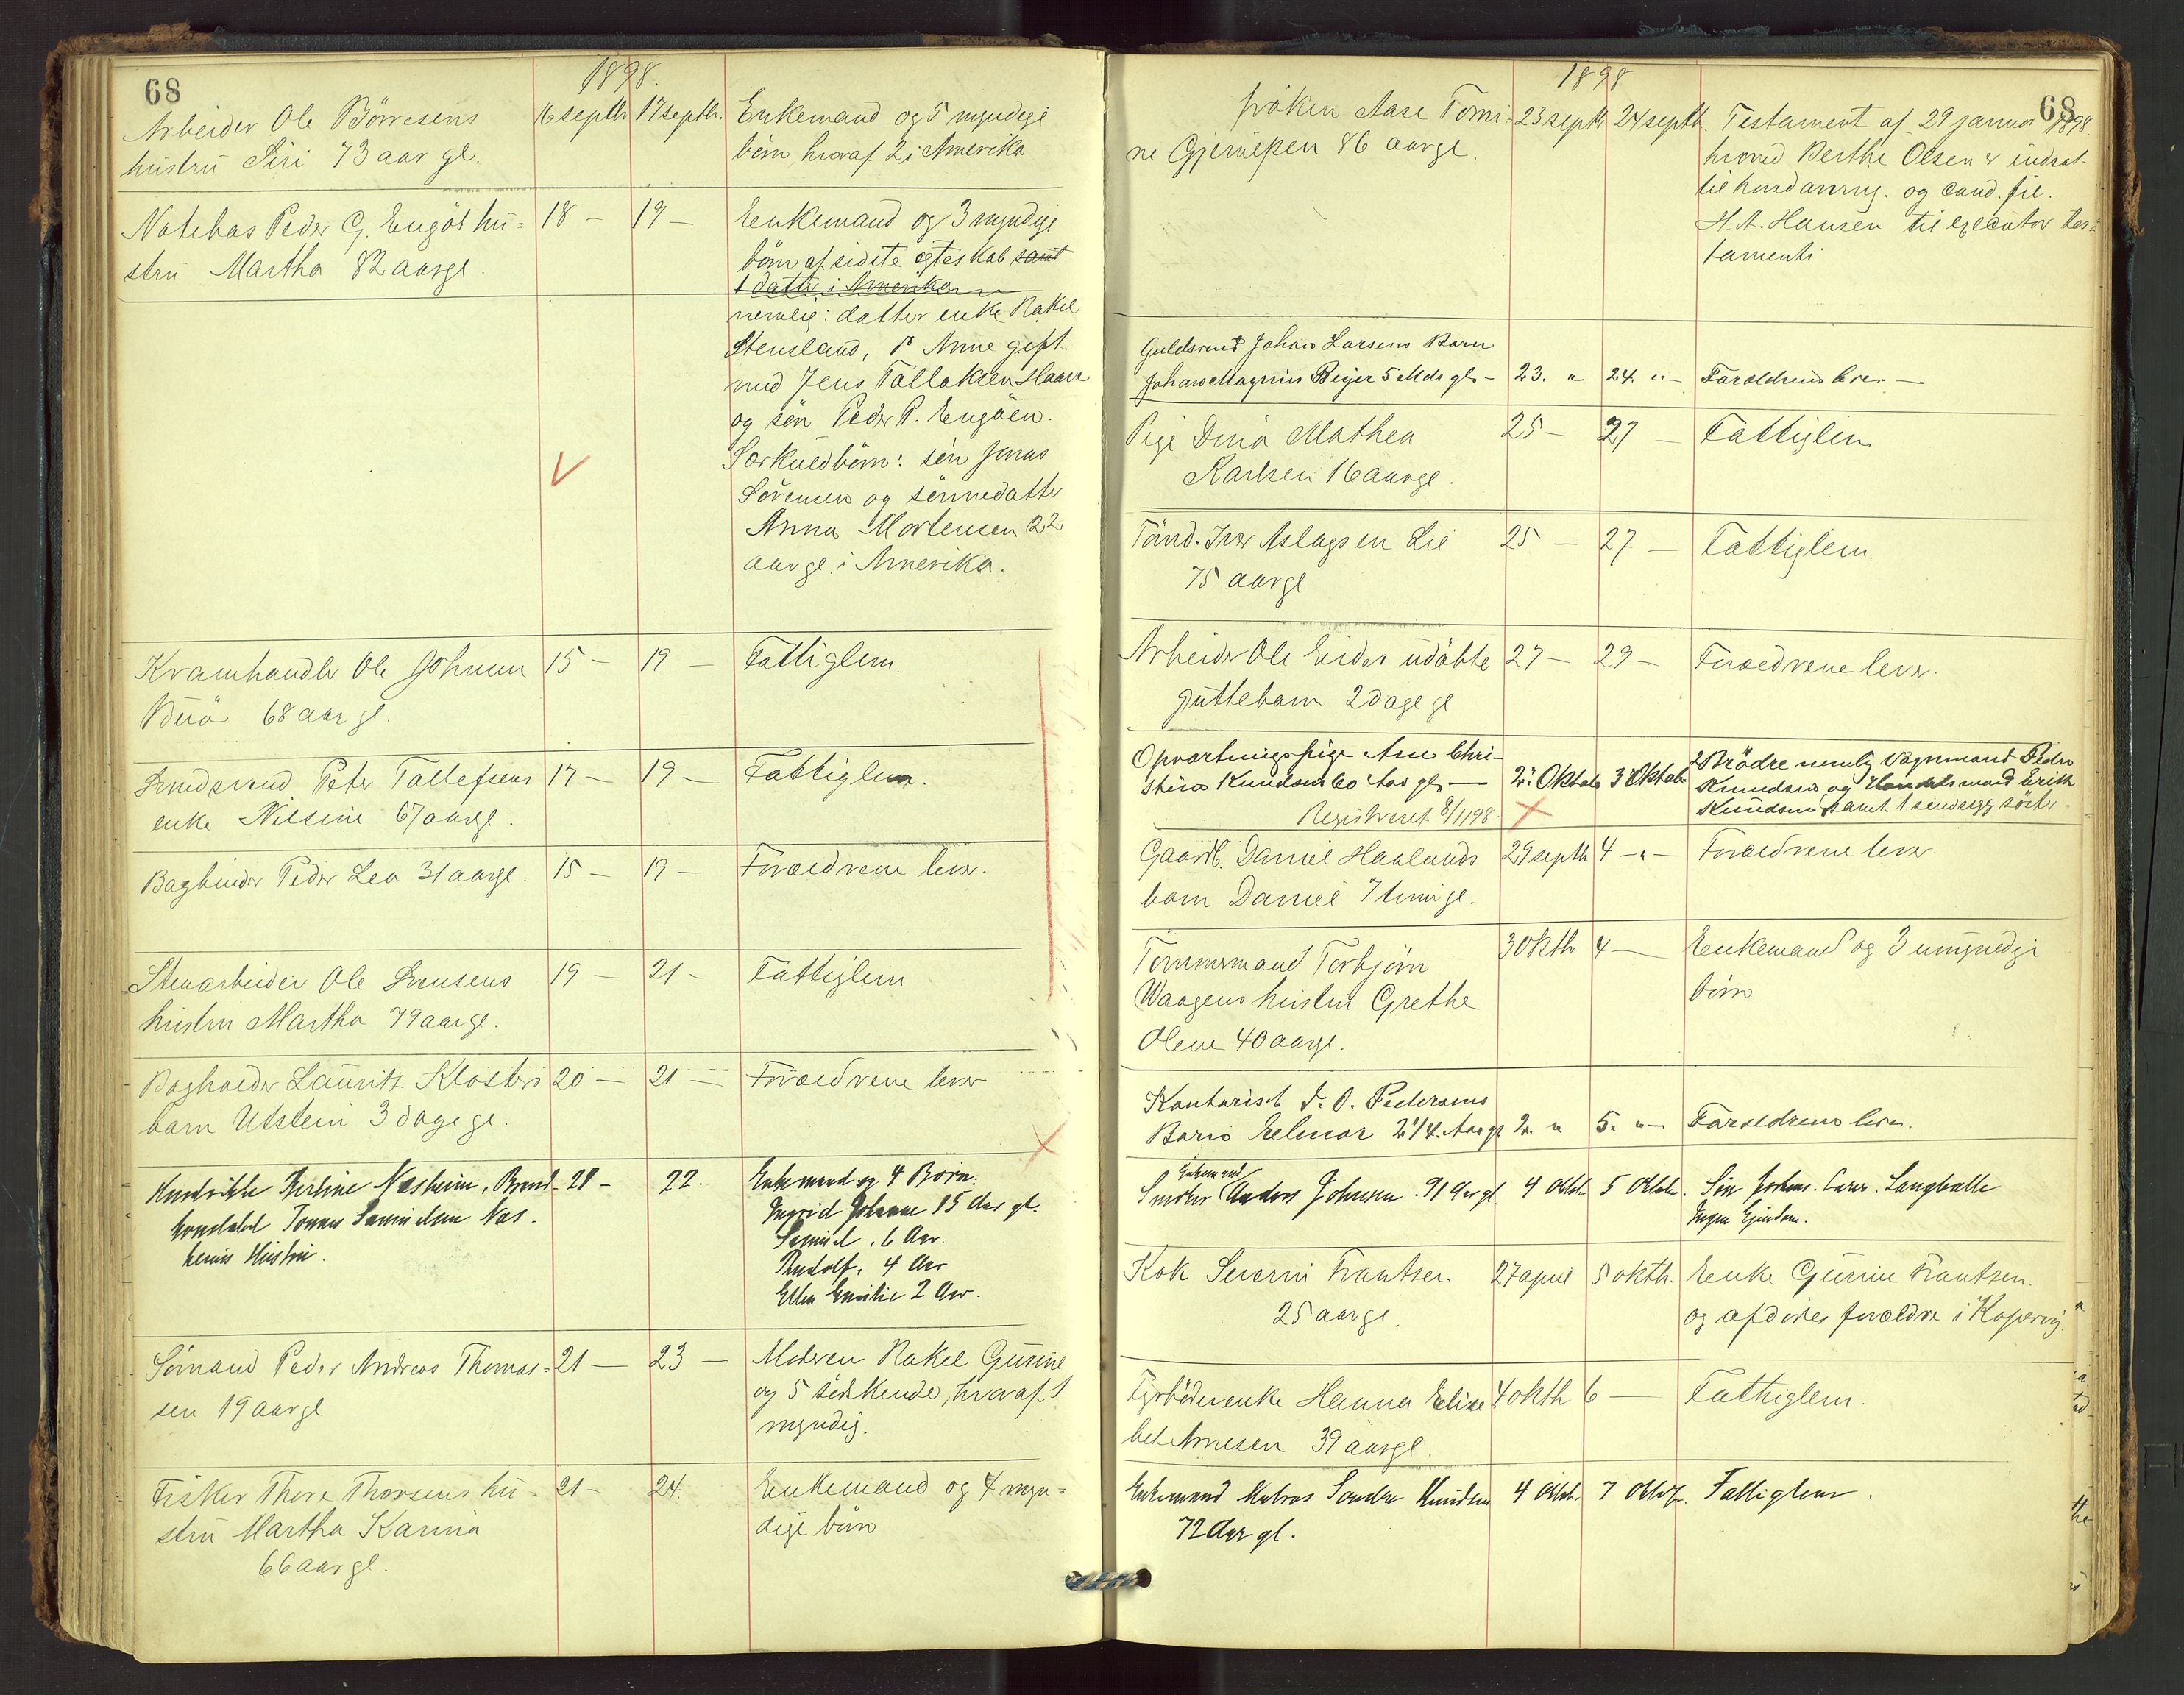 68
1898.
Arbeider Ole Börresens 16 septbr 17 septbr. Enkemand og 5 myndige
hustru Siri 73 aar gl. börn, hvoraf 2 i Amerika
Notebas Peder G. Engös hu= 18 — 19 — Enkemand og 3 myndige
stru Martha 82 aar gl. börn af sidste egteskab samt
1 datter i Amerika
nemlig: datter enke Rakel
Stensland, Anne gift
med Jens Tallaksen Haaer
og sön Peder P. Engöen.
Særkuldbörn: sön Jonas
Sörensen og sönnedatter
Anna Mortensen 22
aar gl. i Amerika.
Kramhandler Ole Johnsen 15 — 19 — Fattiglem.
Buö 68 aar gl.
Smedsvend Peter Tallefsens 17 — 19 — Fattiglem.
enke Nilsine 67 aar gl.
Bagbinder Peder Lea 31 aar gl. 15 — 19 — Forældrene lever.
Stenarbeider Ole Svensens 19 — 21 — Fattiglem
hustru Martha 79 aar gl.
Bogholder Lauritz Klosters 20 — 21 — Forældrene lever
barn Utstein 3 dage gl.
Hendrikke Berline Næsheim, Brand- 21 — 22. Enkemand og 4 Börn:
konstabel Tonnes Samuelsen Næs- Ingrid Johanne 15 Aar gl.
heims Hustru. Samuel, 6 Aar.
Rudolf, 4 Aar
Ellen Emilie 2 Aar.
Sömand Peder Andreas Thomas- 21 — 23 — Moderen Rakel Gurine
sen 19 aar gl og 5 södskende, hvoraf 1
myndig.
Fisker Thore Thorsens hu- 21 — 24. Enkemand og 4 myn=
stru Martha Karina dige börn
66 aar gl.
68
1898
fröken Aase Tomi- 23 septbr 24 septbr. Testament af 29 januar 1898.
ne Gjerulfsen 86 aar gl. hvorved Berthe Olsen er indsat
til hovedarving. og cand. fil.
H. A. Hansen til executor tes=
tamenti
Guldsmed Johan Larsens Barn
Johan Magnus Beyer 5 Mdr gl. — 23. " 24. " — Forældrene lever. —
Pige Dina Mathea 25 — 27 — Fattiglem
Karlsen 16 aar gl.
Tömd. Iver Aslagsen Lie 25 — 27 — Fattiglem.
75 aar gl
Arbeider Ole Eides udöbte 27 — 29 — Forældrene lever.
guttebarn 2 dage gl
Opvartningspige Ane Chri- 2 Brödre nemlig Vognmand Peder
stina Knudsen 60 Aar gl. — 2. Oktober 3 Oktober Knudsen og Handelsmand Erik
Registreret 8/11 98 Knudsen samt 1 sindssyg söster.
Gaardb. Daniel Haalands 29 septbr 4 — " — Forældrene lever.
barn Daniel 7 timer gl.
Tömmermand Torbjörn 3 oktbr 4 — Enkemand og 3 umyndige
Waagens hustru Grethe börn
Olene 40 aar gl.
Kontorist J. O. Pedersens
Barn Helmar 2 1/4 Aar gl 2. " 5. " — Forældrene lever.
Enkemand
Snedker Anders Johnsen. 91 Aar gl. 4 Oktbr. 5 Oktbr. Sön Johan. Langballe
Ingen Eiendom.
Kok Severin Frantsen. 27 april 5 oktbr. Enke Gurine Frantsen.
25 aar gl. og afdödes forældre i Kopervig.
Fyrböderenke Hanna Elisa- 4 oktbr 6 — Fattiglem.
bet Arnesen 39 aar gl.
Enkemand Matros Sander Knudsen 4 Oktbr. 7 Oktbr. Fattiglem.
72 Aar gl.